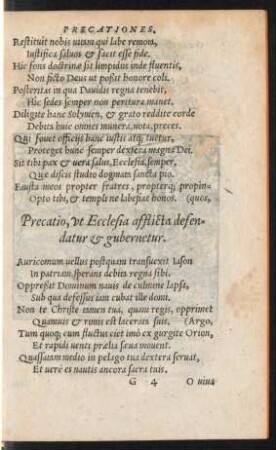 PRECATIONES.
Restituit nobis uitam qui labe remota,
Iustifica saluos & facit esse fide.
Hic fons doctrinæ sit limpidus inde fluentis,
Non ficto Deus ut possit honore coli.
Posteritas in qua Dauidis regna tenebit,
Hic sedes semper non peritura manet.
Diligite hanc Solymen, & grato reddite corde
Debita huic omnes munera, uota, preces.
Qui fouet officijs hanc iustis atq; tuetur,
Proteget hunc semper dextera magna Dei.
Sit tibi pax & uera salus, Ecclesia, semper,
Quæ discis studio dogmata sancta pio.
Fausta meos propter fratres, propterq; propin-
Opto tibi, & templi ne labefiat honos. (quos,
Precatio, vt Ecclesia afflicta defen-
datur & gubernetur.
Auricomum uellus postquam transuexit Iason
In patriam, sperans debita regna sibi.
Oppressit Dominum nauis de culmine lapsa,
Sub qua defessus iam cubat ille domi.
Non te Christe tamen tua, quam regis, opprimet
Quamuis & remis est lacerata suis. (Argo,
Tum quoq; cum fluctus ciet imo ex gurgite Orion,
Et rapidi uenti prælia sæua mouent.
Quassatam medio in pelago tua dextera seruat,
Et uerè es nautis ancora sacra tuis.
G 4 O uiua